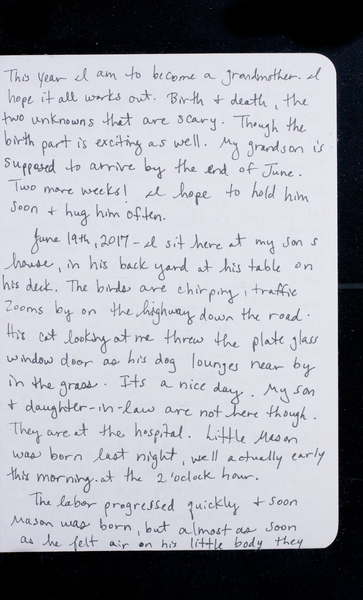 This year I am to become a grandmother. I
hope it all works out. Birth + death, the
two unknowns that are scary. Though the
birth part is exciting as well. My grandson is
supposed to arrive by the end of June.
Two more weeks! I hope to hold him
soon + hug him often.
June 19th, 2017 - I sit here at my son s
house, in his back yard at his table on
his deck. The birds are chirping, traffic
zooms by on the highway down the road.
His cat looking at me threw the plate glass
window door as his dog lounges near by
in the grass. Its a nice day. My son
+ daughter-in-law are not here though.
They are at the hospital. Little Mason
was born last night, well actually early
this morning at the 2 'oclock hour.
The labor progressed quickly + soon
Mason was born, but almost as soon
as he felt air on his little body they